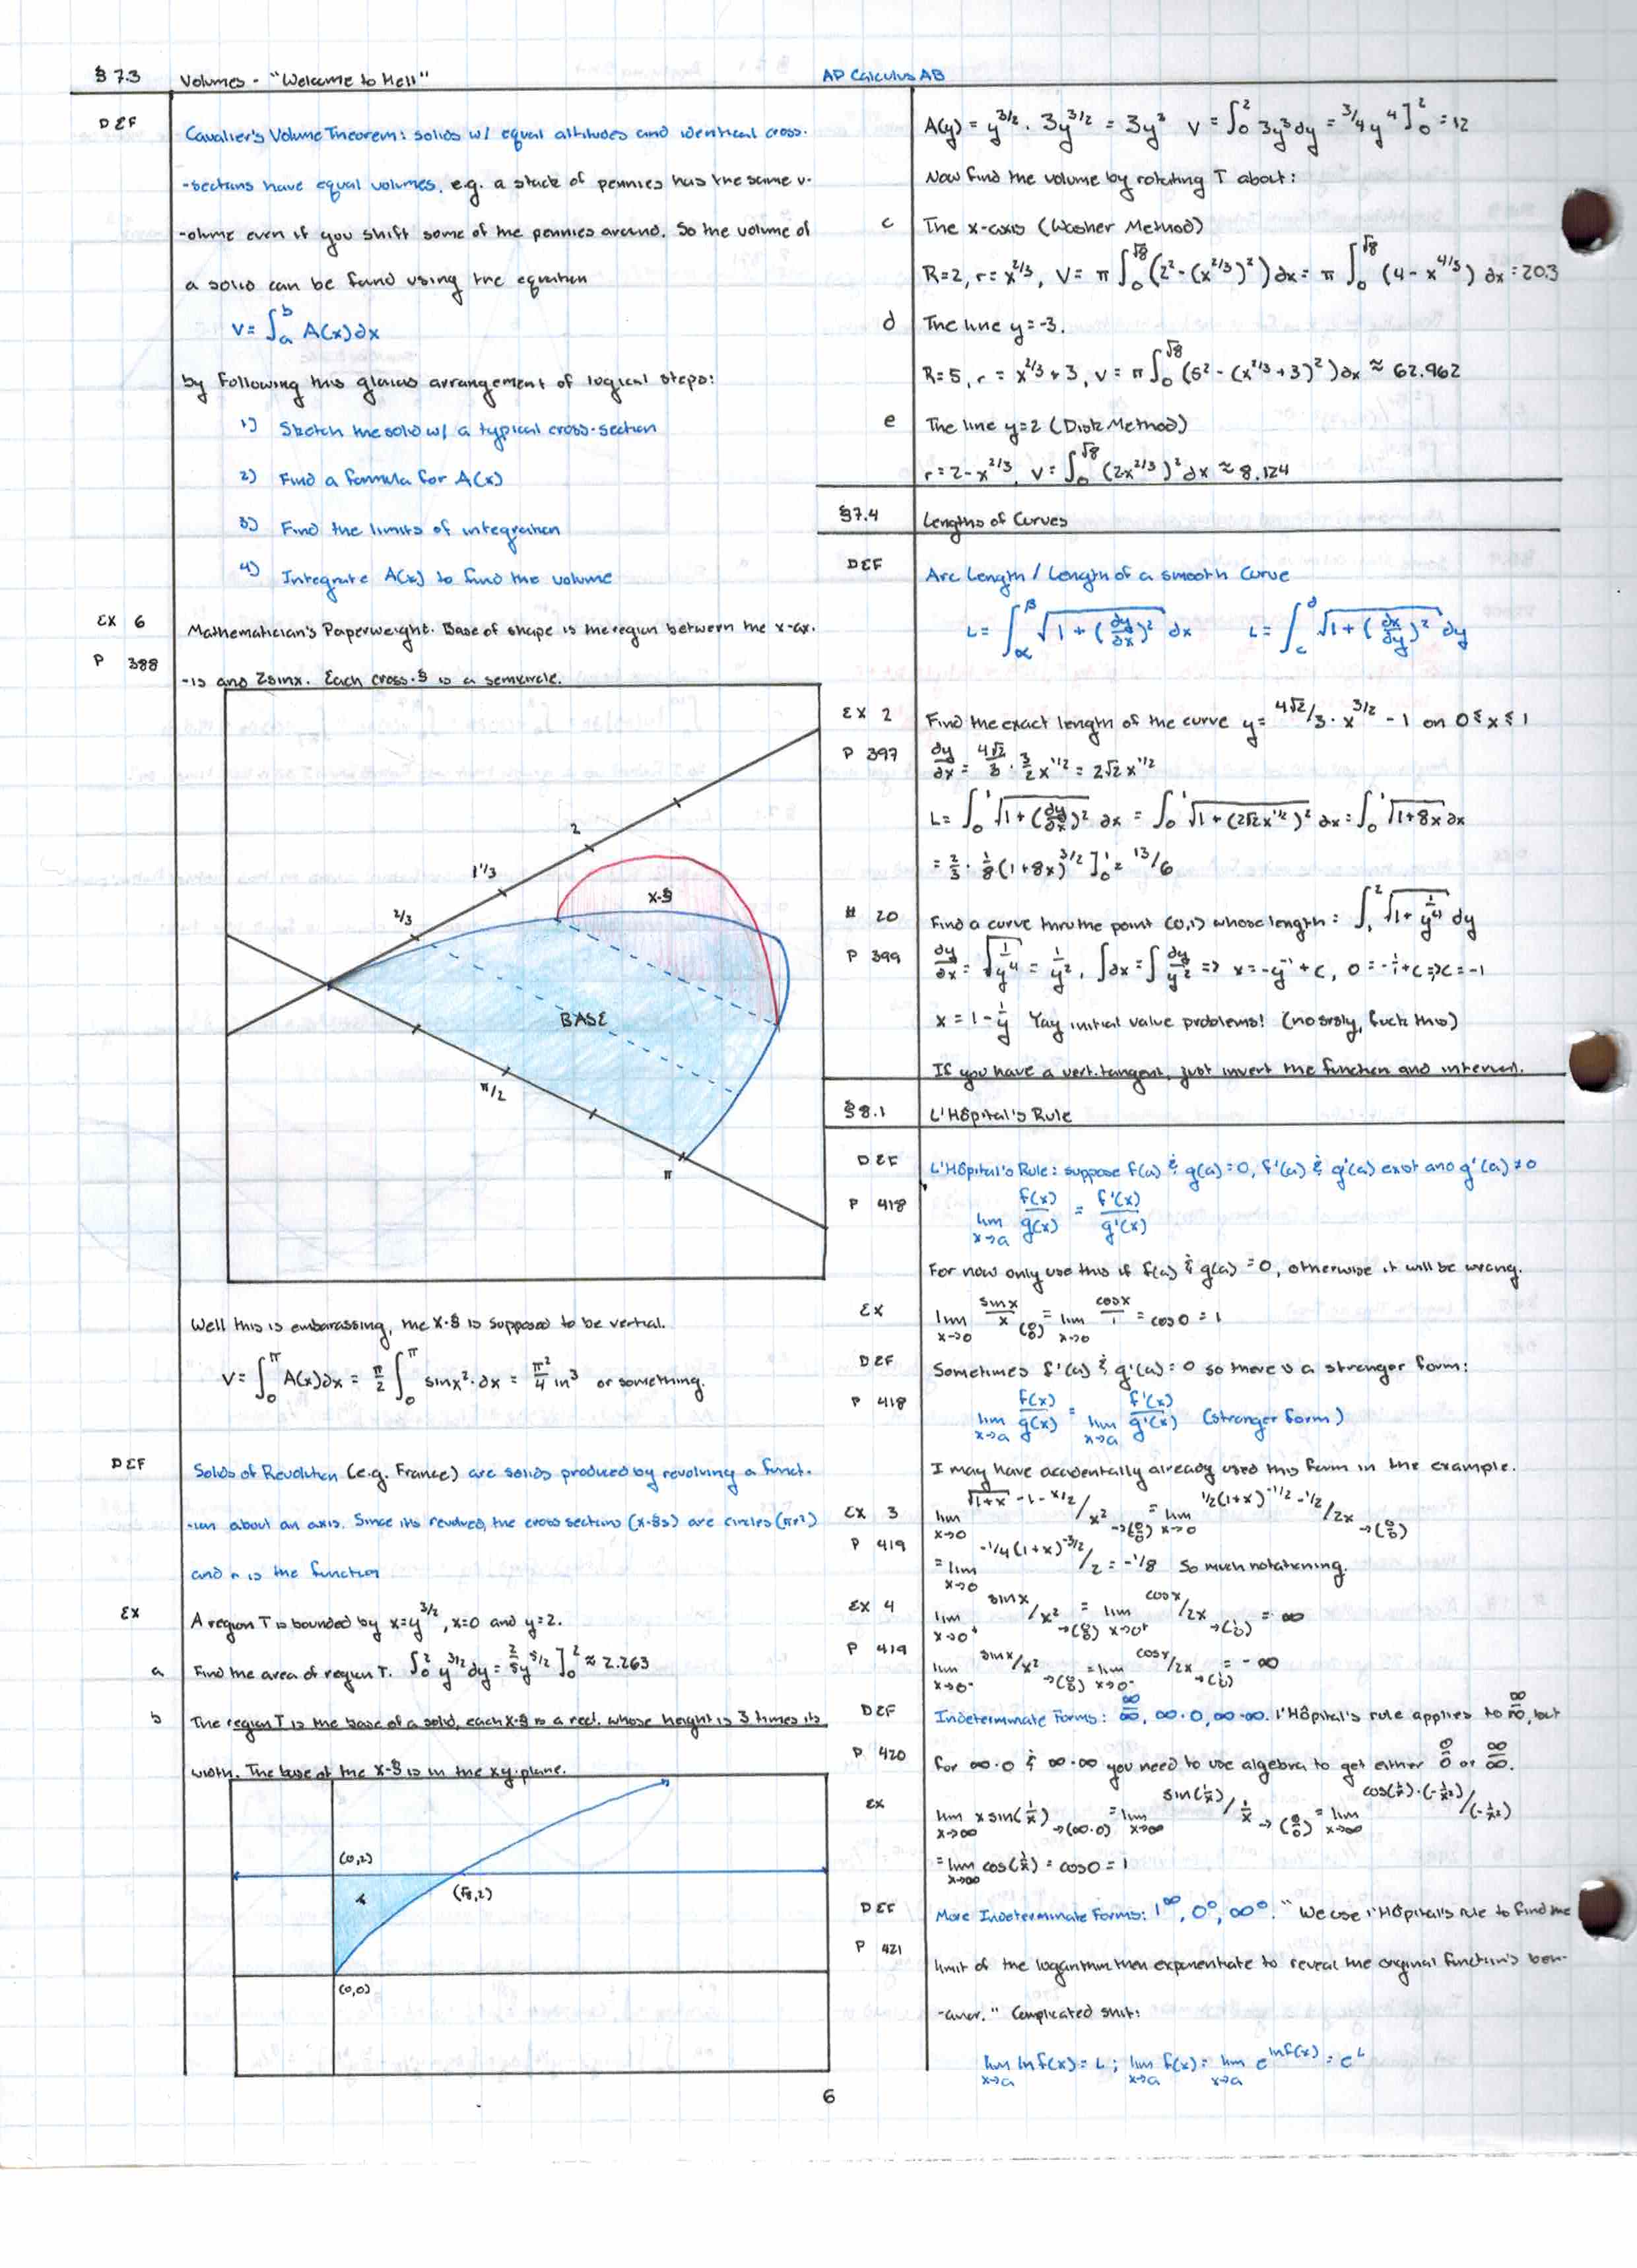 § 7.3 Volumes - "Welcome to Hell"
AP Calculus AB
DEF
Cavalier's Volume Theorem: solids w/ equal altitudes and identical cross-
-sections have equal volumes, e.g. a stack of pennies has the same v-
-olume even if you shift some of the pennies around. So the volume of
a solid can be found using the equation
V = ∫ₐᵇ A(x)∂x
by following this glorious arrangement of logical steps:
1) Sketch the solid w/ a typical cross-section
2) Find a formula for A(x)
3) Find the limits of integration
4) Integrate A(x) to find the volume
EX 6
P 388
Mathematician's Paperweight. Base of shape is the region between the x-ax-
-is and 2sinx. Each cross-§ is a semicircle.
2
1 1/3
2/3
x-§
BASE
π/2
π
Well this is embarassing, the x-§ is supposed to be vertical.
V = ∫₀^π A(x)∂x = π/2 ∫₀^π sinx² · ∂x = π²/4 in³ or something.
DEF
Solids of Revolution (e.g. France) are solids produced by revolving a funct-
-ion about an axis. Since its revolved, the cross sections (x-§s) are circles (πr²)
and r is the function
EX
A region T is bounded by x=y^3/2, x=0 and y=2.
a Find the area of region T. ∫₀² y^3/2 dy = 2/5 y^5/2 ]₀² ≈ 2.263
b The region T is the base of a solid, each x-§ is a rect. whose height is 3 times its
width. The base of the x-§ is in the xy-plane.
(0,2)
(√8,2)
(0,0)
A(y) = y^3/2 · 3y^3/2 = 3y³ V = ∫₀² 3y³dy = 3/4 y⁴ ]₀² = 12
Now find the volume by rotating T about:
c The x-axis (Washer Method)
R=2, r=x^2/3, V = π ∫₀^√8 (2² - (x^2/3)²) ∂x = π ∫₀^√8 (4 - x^4/3) ∂x = 20.3
d The line y=-3.
R=5, r = x^2/3 + 3, V = π ∫₀^√8 (5² - (x^2/3 + 3)²)∂x ≈ 62.962
e The line y=2 (Disk Method)
r = 2-x^2/3, V = ∫₀^√8 (2x^2/3)² ∂x ≈ 8.124
§7.4 Lengths of Curves
DEF
Arc Length / Length of a smooth Curve
L = ∫_α^β √(1 + (∂y/∂x)²) ∂x L = ∫_c^d √(1 + (∂x/∂y)²) ∂y
EX 2
P 397
Find the exact length of the curve y = 4√2/3 · x^3/2 - 1 on 0≤x≤1
∂y/∂x = 4√2/3 · 3/2 x^1/2 = 2√2 x^1/2
L = ∫₀¹ √(1 + (∂y/∂x)²) ∂x = ∫₀¹ √(1 + (2√2x^1/2)²) ∂x = ∫₀¹ √(1+8x) ∂x
= 2/3 · 1/8 (1+8x)^3/2 ]₀¹ = 13/6
# 20
P 399
Find a curve thru the point (0,1) whose length = ∫₁² √(1 + 1/y⁴) dy
∂y/∂x = √(1/y⁴) = 1/y², ∫∂x = ∫ ∂y/y² => x = -y⁻¹ + c, 0 = -1 + c => c = -1
x = 1 - 1/y Yay initial value problems! (no srsly, fuck this)
If you have a vert. tangent, just invert the function and interval.
§8.1 L'Hôpital's Rule
DEF
P 418
L'Hôpital's Rule: suppose f(a) & g(a) = 0, f'(a) & g'(a) exist and g'(a) ≠ 0
lim x→a f(x)/g(x) = f'(x)/g'(x)
For now only use this if f(a) & g(a) = 0, otherwise it will be wrong.
EX
lim x→0 sinx/x (0/0) = lim x→0 cosx/1 = cos0 = 1
DEF
P 418
Sometimes f'(a) & g'(a) = 0 so there is a stronger form:
lim x→a f(x)/g(x) = lim x→a f'(x)/g'(x) (stronger form)
I may have accidentally already used this form in the example.
EX 3
P 419
lim x→0 √(1+x) - 1 - x/2 / x² →(0/0) = lim x→0 1/2(1+x)^-1/2 - 1/2 / 2x →(0/0)
= lim x→0 -1/4(1+x)^-3/2 / 2 = -1/8 So much notationing.
EX 4
P 419
lim x→0⁺ sinx/x² →(0/0) = lim x→0⁺ cosx/2x →(1/0) = ∞
lim x→0⁻ sinx/x² →(0/0) = lim x→0⁻ cosx/2x →(1/0) = -∞
DEF
P 420
Indeterminate Forms: ∞/∞, ∞·0, ∞-∞. L'Hôpital's rule applies to ∞/∞, but
for ∞·0 & ∞-∞ you need to use algebra to get either 0/0 or ∞/∞.
EX
lim x→∞ x sin(1/x) →(∞·0) = lim x→∞ sin(1/x) / 1/x →(0/0) = lim x→∞ cos(1/x)·(-1/x²) / (-1/x²)
= lim x→∞ cos(1/x) = cos0 = 1
DEF
P 421
More Indeterminate Forms: 1^∞, 0⁰, ∞⁰. "We use l'Hôpital's rule to find the
limit of the logarithm then exponentiate to reveal the original function's beh-
-avior." Complicated shit:
lim x→a ln f(x) = L; lim x→a f(x) = lim x→a e^lnf(x) = e^L
6